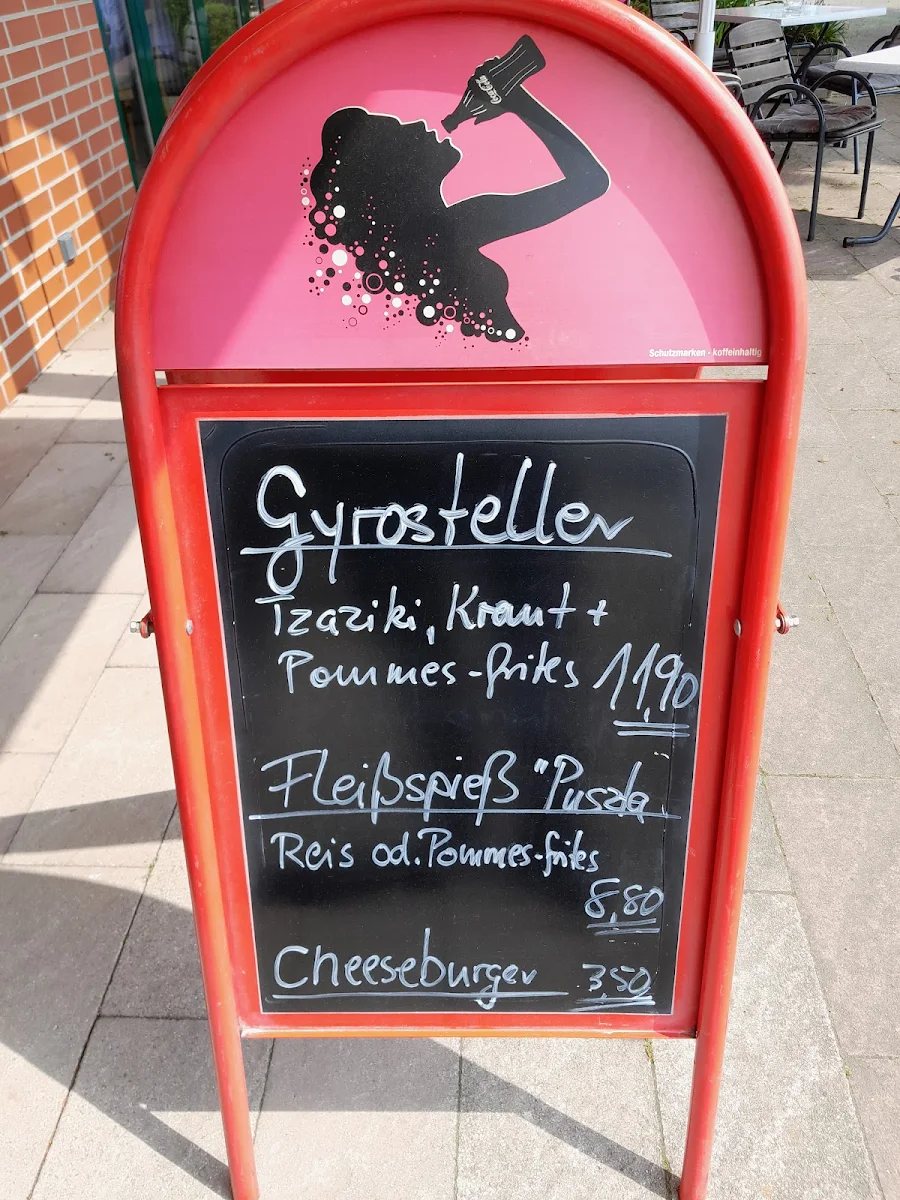 Coca-Cola
Schutzmarken · koffeinhaltig
Gyrosteller
Tzaziki, Kraut +
Pommes-frites 11,90
Fleißspieß "Puszda"
Reis od. Pommes-frites
8,80
Cheeseburger 3,50